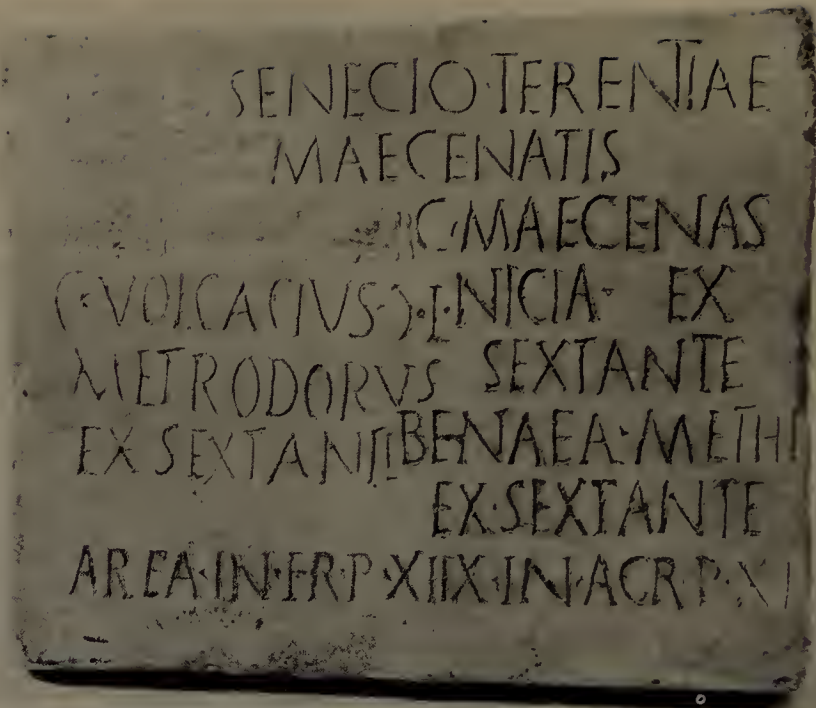 SENECIO·TERENTIAE
MAECENATIS
C·MAECENAS
C·VOLCACIVS·Ɔ·L·NICIA· EX
METRODORVS SEXTANTE
EX SEXTANTE BENAEA·METH
EX·SEXTANTE
AREA·IN·FR·P·XIIX·IN·ACR·P·XI